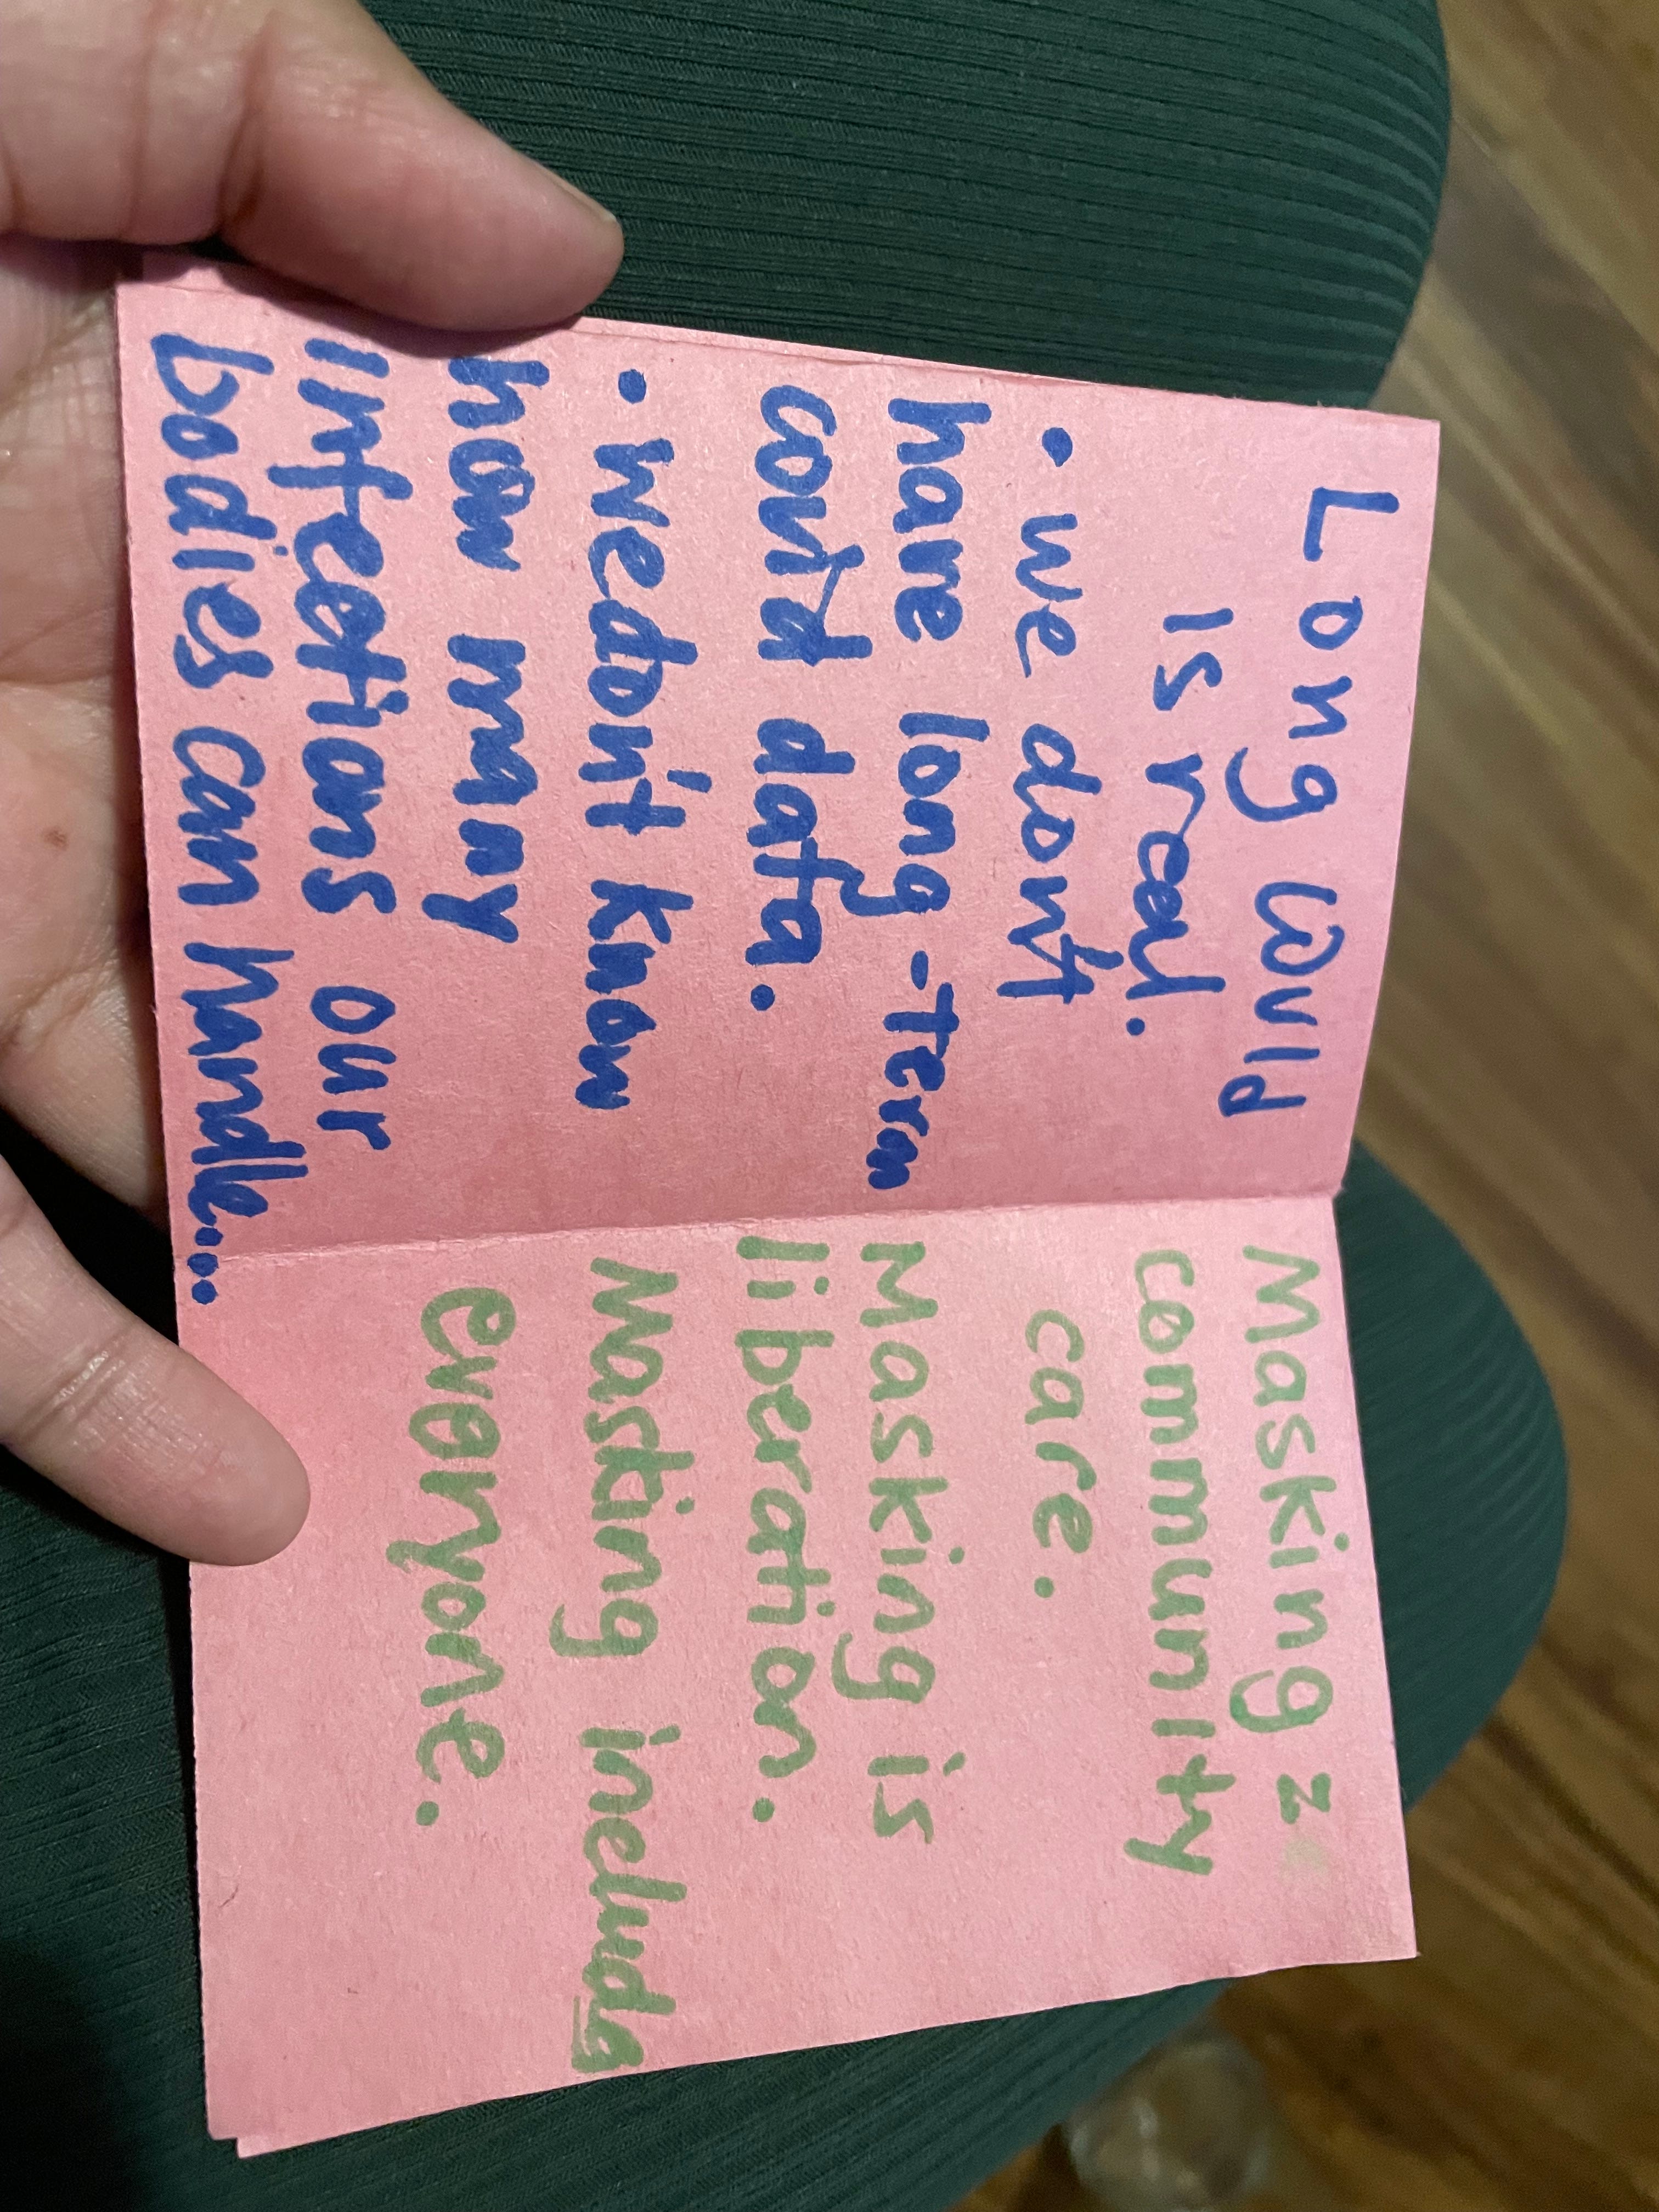 Long Covid
is real.
• we don't
have long-Term
covid data.
• we don't know
how many
infections our
bodies can handle...
Masking z
community
care.
Masking is
liberation.
Masking includes
everyone.